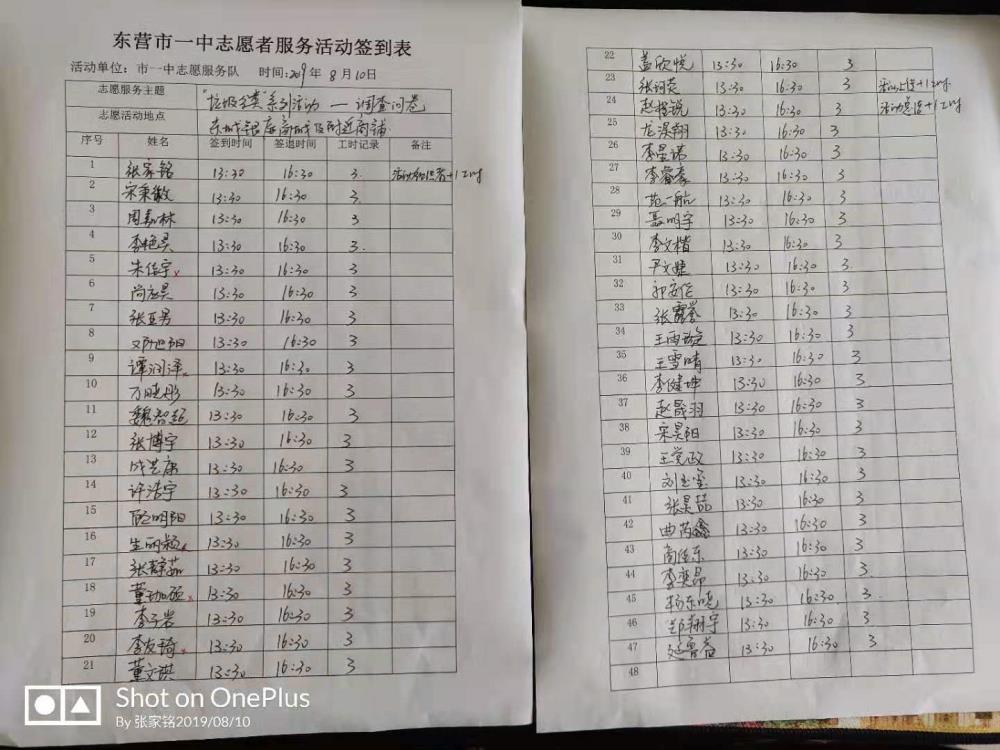 东营市一中志愿者服务活动签到表
活动单位：市一中志愿服务队 时间：2019年 8月10日
志愿服务主题 "垃圾分类"系列活动 — 调查问卷
志愿活动地点 东城银座商城及附近商铺
序号 姓名 签到时间 签退时间 工时记录 备注
1 张家铭 13:30 16:30 3. +1工时
2 宋秉徽 13:30 16:30 3.
3 周嘉林 13:30 16:30 3
4 李艳昊 13:30 16:30 3.
5 朱佳宇 13:30 16:30 3
6 尚应昊 13:30 16:30 3
7 张亚男 13:30 16:30 3
8 邓旭阳 13:30 16:30 3
9 谭润泽 13:30 16:30 3
10 万晓彤 13:30 16:30 3
11 魏智超 13:30 16:30 3
12 张博宇 13:30 16:30 3
13 13:30 16:30 3
14 许浩宇 13:30 16:30 3
15 明阳 13:30 16:30 3
16 生丽颖 13:30 16:30 3
17 张静茹 13:30 16:30 3
18 董珈硕 13:30 16:30 3
19 李子岩 13:30 16:30 3
20 李友琦 13:30 16:30 3
21 董文琪 13:30 16:30 3
22 盖欣悦 13:30 16:30 3
23 张词英 13:30 16:30 3 +1工时
24 赵梓锐 13:30 16:30 3 活动总结+1工时
25 龙淏翔 13:30 16:30 3
26 李星诺 13:30 16:30 3
27 李睿豪 13:30 16:30 3
28 范一航 13:30 16:30 3
29 聂明宇 13:30 16:30 3
30 李文楷 13:30 16:30 3
31 尹文婕 13:30 16:30 3.
32 13:30 16:30 3
33 张露誉 13:30 16:30 3
34 王雨璇 13:30 16:30 3
35 王雪晴 13:30 16:30 3
36 李健坤 13:30 16:30 3
37 赵晟羽 13:30 16:30 3
38 宋昊阳 13:30 16:30 3
39 王党政 13:30 16:30 3
40 刘玉玺 13:30 16:30 3
41 张昊喆 13:30 16:30 3
42 曲芮鑫 13:30 16:30 3
43 商佳东 13:30 16:30 3
44 李奕昂 13:30 16:30 3.
45 杨东晓 13:30 16:30 3
46 郑翔宇 13:30 16:30 3
47 延鲁益 13:30 16:30 3
48
Shot on OnePlus
By 张家铭2019/08/10